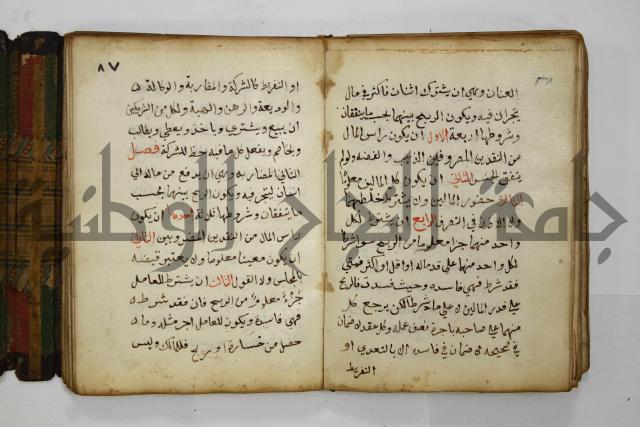 العنان وهي ان يشترك اثنان فاكثر في مال
يتجران فيه ويكون الربح بينهما بحسب ما يتفقان
وشروطها اربعة الاول ان يكون راس المال
من النقدين المضروبين الذهب والفضة ولو لم
يتفق الجنس الثاني ان يكون كل المالين معلوما
الثالث حضور المالين ولا يشترط خلطهما
ولا الاذن في التصرف الرابع ان يشترط لكل
واحد منهما جزا معلوما من الربح سوا شرطا
لكل واحد منهما على قدر ماله او اقل او اكثر فمتى
فقد شرط فهي فاسدة وحيث فسدت فالربح
على قدر المالين لا على ما شرطا لكن يرجع كل
منهما على صاحبه باجرة نصف عمله وكل عقد لا ضمان
في صحيحه لا ضمان في فاسده الا بالتعدي او
التفريط
٨٧
او التفريط كالشركة والمضاربة والوكالة
والوديعة والرهن والهبة ولكل من الشريكين
ان يبيع ويشتري وياخذ ويعطي ويطالب
ويخاصم ويفعل كل ما فيه حظ للشركة فصل
الثاني المضاربة وهي ان يدفع من ماله الى
انسان ليتجر فيه ويكون الربح بينهما بحسب
ما يتفقان وشروطها ثلاثة احدها ان يكون
راس المال من النقدين المضروبين الثاني
ان يكون معينا معلوما ولا يعتبر قبضه
بالمجلس ولا القول الثالث ان يشترط للعامل
جزء معلوم من الربح فان فقد شرط
فهي فاسدة ويكون للعامل اجر مثله وما
حصل من خسارة او ربح فللمالك وليس
جامعة النجاح الوطنية